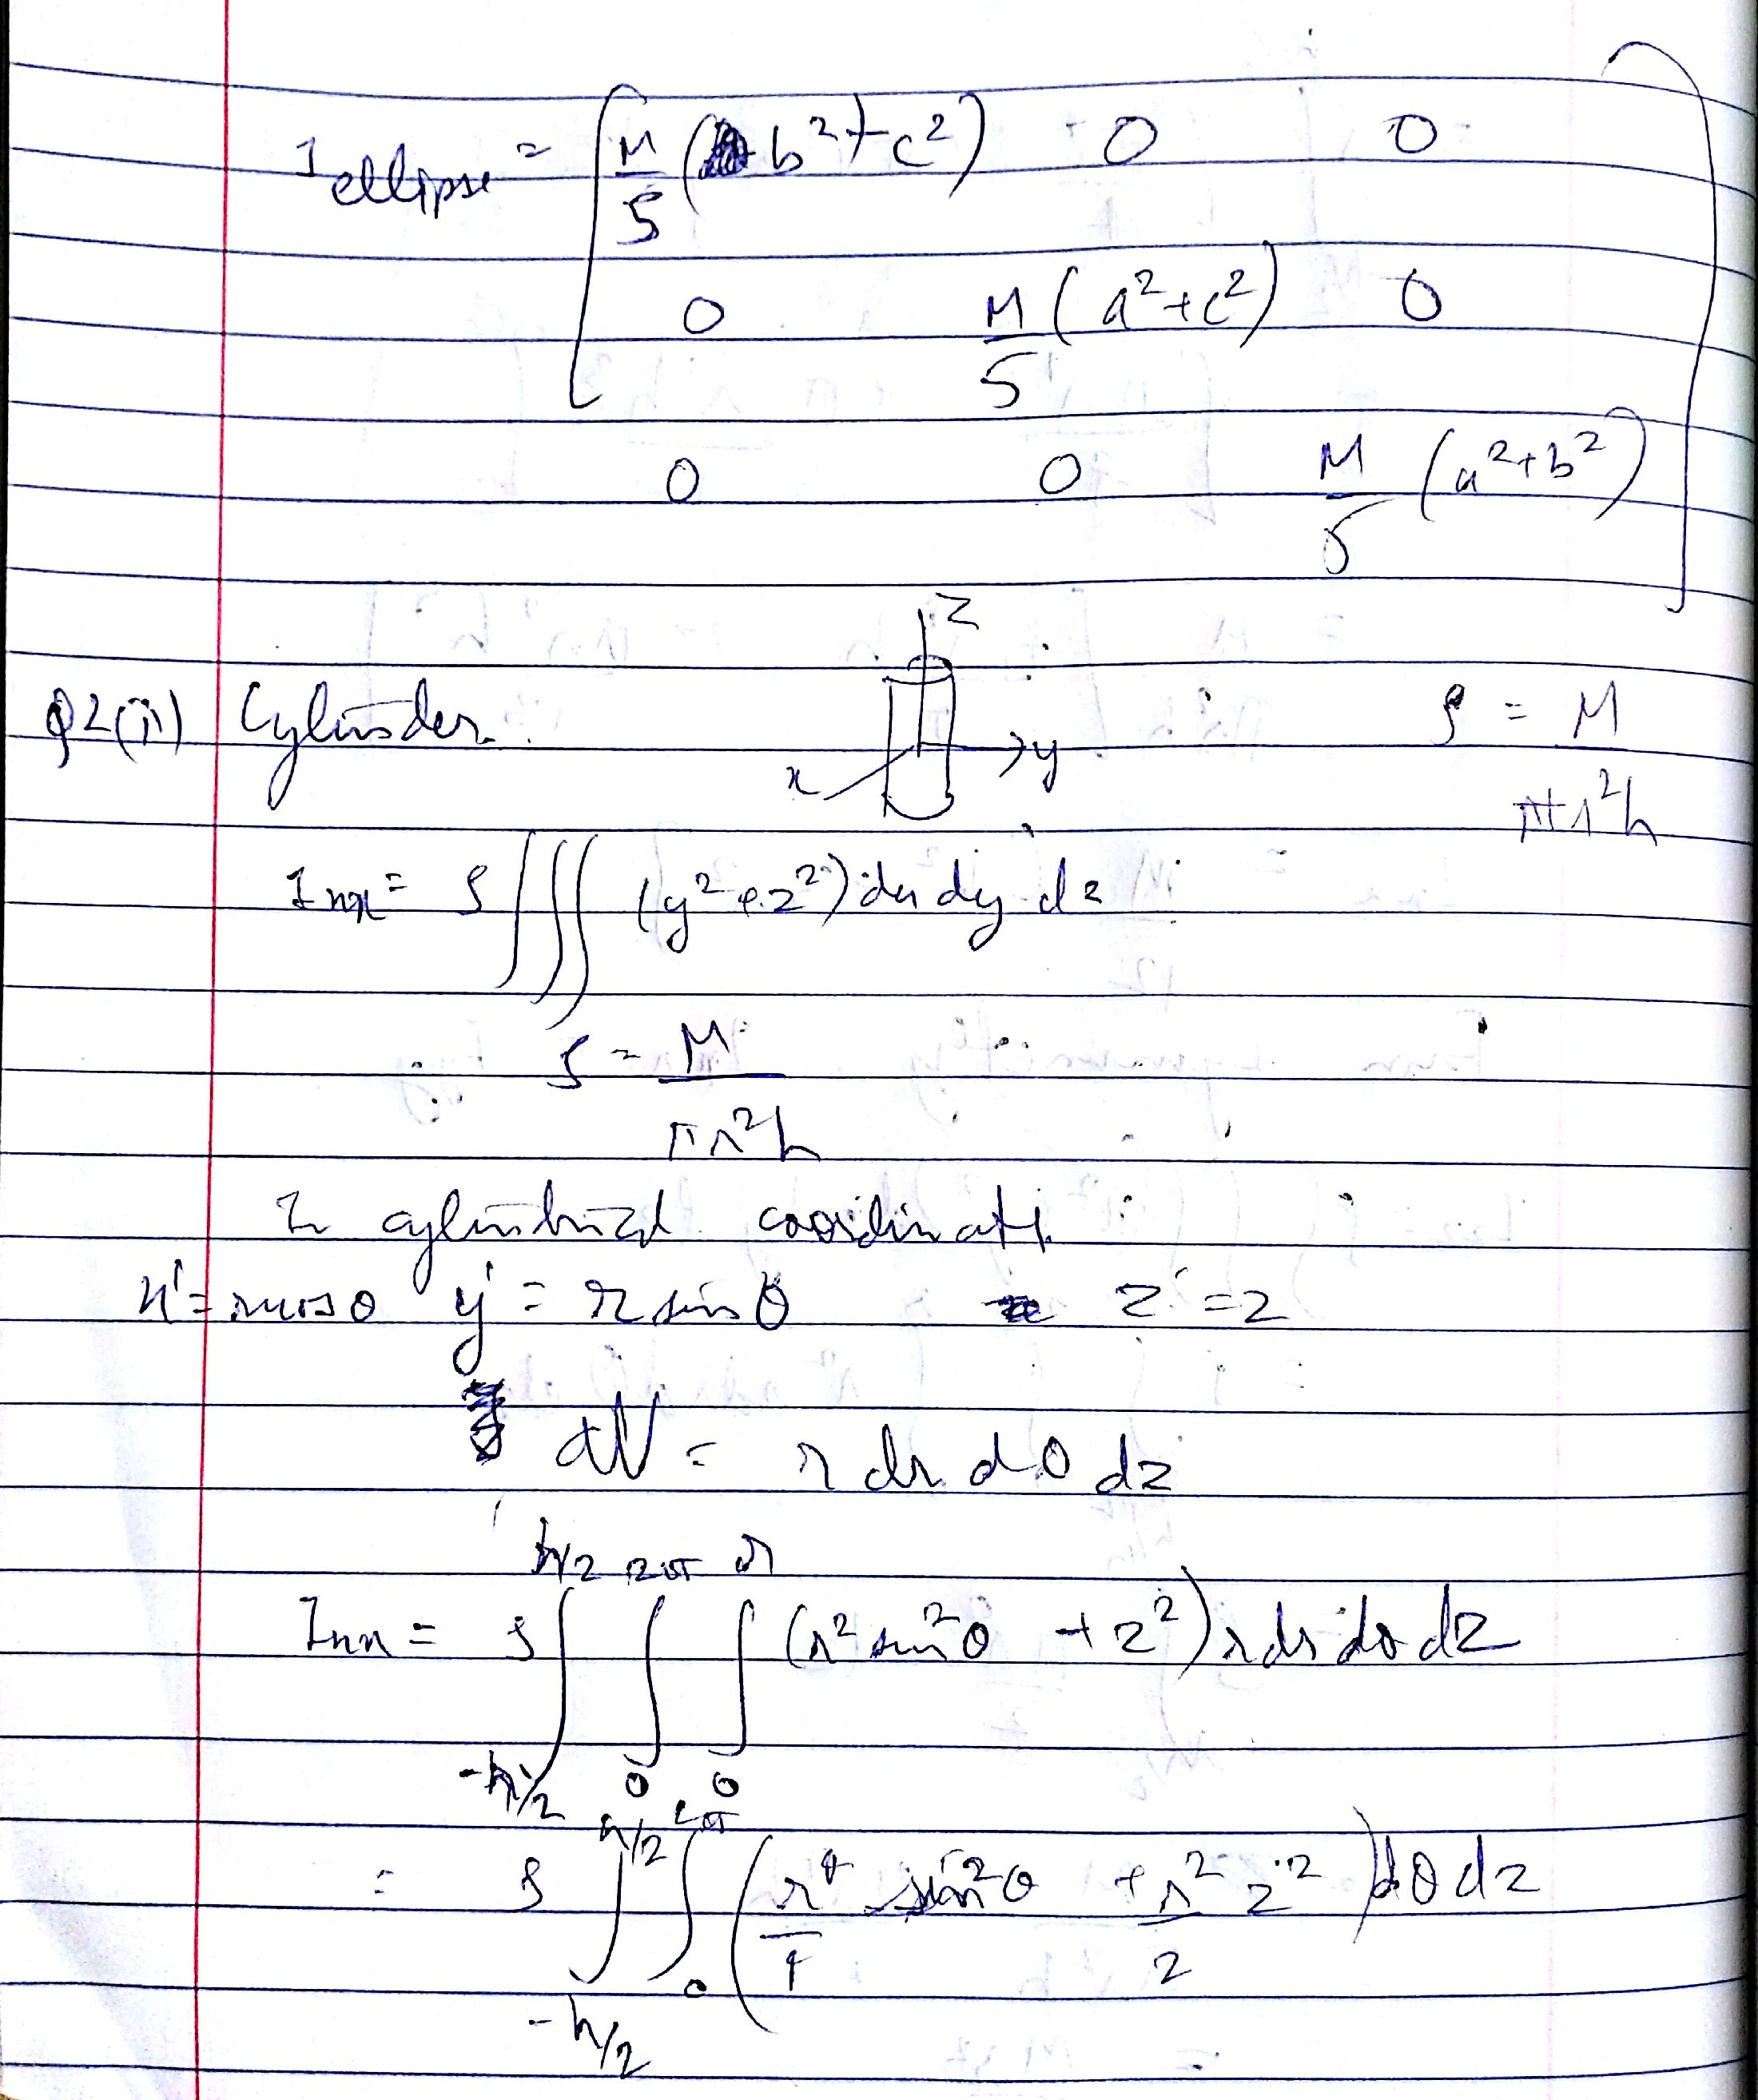 I ellipse = [ M/5 (b² + c²) 0 0
0 M/5 (a² + c²) 0
0 0 M/5 (a² + b²) ]
z
Q2(ii) Cylinder. x y ρ = M/πr²h
Ixx = ρ∫∫∫ (y² + z²) dx dy dz
ρ = M/πr²h
In cylindrical coordinate
x' = r cos θ y' = r sin θ z' = z
dV = r dr dθ dz
Ixx = ρ ∫_{-h/2}^{h/2} ∫_0^{2π} ∫_0^r (r² sin²θ + z²) r dr dθ dz
= ρ ∫_{-h/2}^{h/2} ∫_0^{2π} (r⁴/4 sin²θ + r²/2 z²) dθ dz